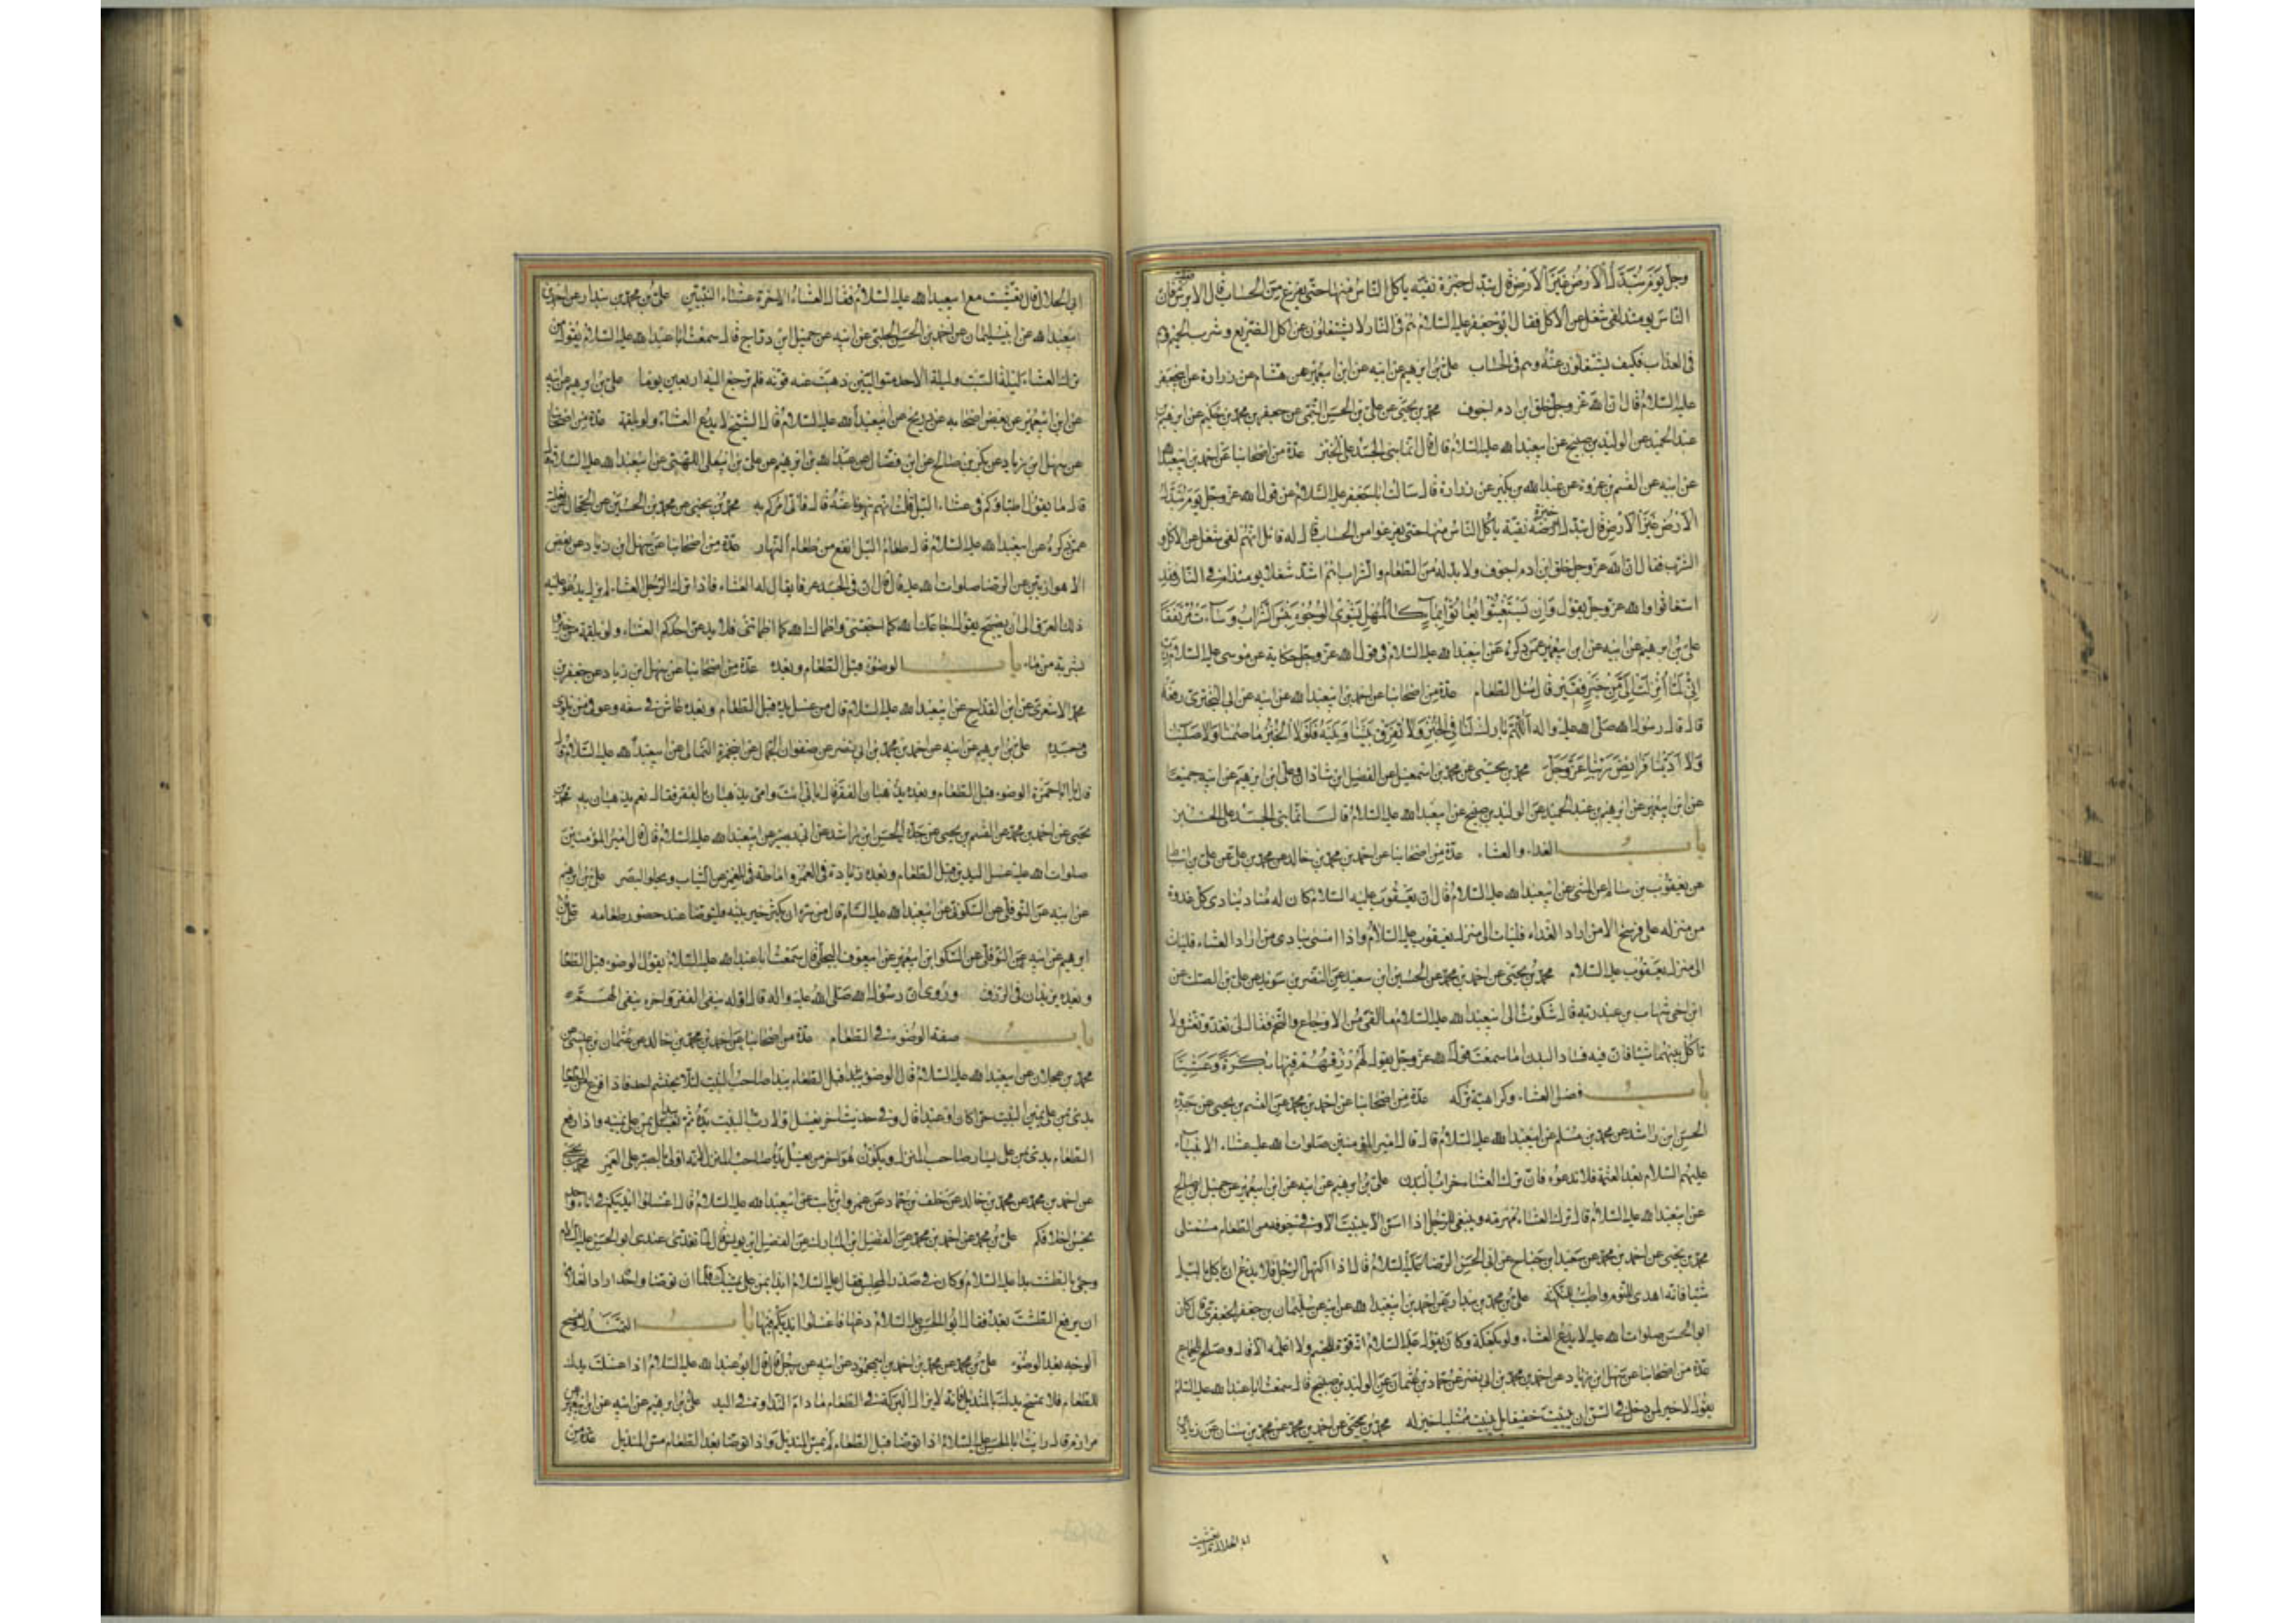 وجل يوم تبدل الأرض غير الأرض قال تبدل خبزة نقية يأكل الناس منها حتى يفرغ من الحساب قال الابرش فان
الناس يومئذ لفي شغل عن الاكل فقال ابو جعفر عليه السلام هم في النار لا يشتغلون عن اكل الضريع وشرب الحميم وهم
في العذاب فكيف يشتغلون عنه وهم في الحساب علي بن ابرهيم عن ابيه عن ابن ابيعمير عن هشام عن زرارة عن ابيجعفر
عليه السلام قال ان الله عز وجل خلق ابن ادم اجوف محمد بن يحيى عن علي بن الحسن التيمي عن جعفر بن محمد بن حكيم عن ابرهيم بن
عبد الحميد عن الوليد بن صبيح عن ابيعبد الله عليه السلام قال قال انما بني الجسد على الخبز عدة من اصحابنا عن احمد بن ابيعبد الله
عن ابيه عن القسم بن عروة عن عبد الله بن بكير عن زرارة قال سالت ابا جعفر عليه السلام عن قول الله عز وجل يوم تبدل
الأرض غير الأرض قال تبدل خبزة نقية يأكل الناس منها حتى يفرغوا من الحساب قال له قائل انهم لفي شغل عن الاكل و
الشرب فقال ان الله عز وجل خلق ابن ادم اجوف ولا بد له من الطعام والشراب اهم اشد شغلا يومئذ ام في النار فقد
استغاثوا والله عز وجل يقول وان يستغيثوا يغاثوا بماء كالمهل يشوي الوجوه بئس الشراب وساءت مرتفقا
علي بن ابرهيم عن ابيه عن ابن ابيعمير عمن ذكره عن ابيعبد الله عليه السلام في قول الله عز وجل حكاية عن موسى عليه السلام رب
اني لما أنزلت الي من خير فقير قال سال الطعام عدة من اصحابنا عن احمد بن ابيعبد الله عن ابيه عن ابي البختري رفعه
قال قال رسول الله صلى الله عليه واله اللهم بارك لنا في الخبز ولا تفرق بيننا وبينه فلولا الخبز ما صمنا ولا صلينا
ولا ادينا فرايض ربنا عز وجل محمد بن يحيى عن محمد بن اسمعيل عن الفضل بن شاذان وعلي بن ابرهيم عن ابيه جميعا
عن ابن ابيعمير عن ابرهيم بن عبد الحميد عن الوليد بن صبيح عن ابيعبد الله عليه السلام قال انما بني الجسد على الخبز
باب الغداء والعشاء عدة من اصحابنا عن احمد بن محمد بن خالد عن محمد بن علي عن علي بن اسباط
عن يعقوب بن سالم عن المثنى عن ابيعبد الله عليه السلام قال ان يعقوب عليه السلام كان له مناد ينادي كل غدوة
من منزله على فرسخ الا من اراد الغداء فليات الى منزل يعقوب عليه السلام واذا امسى ينادي من اراد العشاء فليات
الى منزل يعقوب عليه السلام محمد بن يحيى عن احمد بن محمد عن الحسين بن سعيد عن النضر بن سويد عن علي بن الصلت عن
ابن اخي شهاب بن عبد ربه قال شكوت الى ابيعبد الله عليه السلام ما القى من الاوجاع والتخم فقال لي تغد وتعش ولا
تأكل بينهما شيئا فان فيه فساد البدن اما سمعت قول الله عز وجل يقول لهم رزقهم فيها بكرة وعشيا
باب فضل العشاء وكراهية تركه عدة من اصحابنا عن احمد بن محمد عن القسم بن يحيى عن جده
الحسن بن راشد عن محمد بن مسلم عن ابيعبد الله عليه السلام قال قال امير المؤمنين صلوات الله عليه عشاء الانبياء
عليهم السلام بعد العتمة فلا تدعوه فان ترك العشاء خراب البدن علي بن ابرهيم عن ابيه عن ابن ابيعمير عن جميل بن صالح
عن ابيعبد الله عليه السلام قال ترك العشاء مهرمة وينبغي للرجل اذا اسن الا يبيت الا وفي جوفه من الطعام ممتلي
محمد بن يحيى عن احمد بن محمد عن سعيد بن جناح عن ابي الحسن الرضا عليه السلام قال اذا اكتهل الرجل فلا يدع ان ياكل بالليل
شيئا فانه اهدى للنوم واطيب للنكهة علي بن محمد بن بندار عن احمد بن ابيعبد الله عن ابيه عن سليمان بن جعفر الجعفري قال كان
ابو الحسن صلوات الله عليه لا يدع العشاء ولو بكعكة وكان يقول عليه السلام انه قوة للجسم ولا اعلمه الا قال وصالح للجماع
عدة من اصحابنا عن سهل بن زياد عن احمد بن محمد بن ابي نصر عن حماد بن عثمان عن الوليد بن صبيح قال سمعت ابا عبد الله عليه السلام
يقول لا خير لمن دخل في السن ان يبيت خفيفا بل يبيت ممتليا خير له محمد بن يحيى عن احمد بن محمد عن محمد بن سنان عن زياد بن
ابي الحلال قال تعشيت
ابي الحلال قال تعشيت مع ابيعبد الله عليه السلام فقال العشاء الاخرة عشاء النبيين علي بن محمد بن بندار عن احمد بن
ابيعبد الله عن ابي سليمان عن احمد بن الحسن الجبلي عن ابيه عن جميل بن دراج قال سمعت ابا عبد الله عليه السلام يقول من
ترك العشاء ليلة السبت وليلة الاحد متواليتين ذهبت عنه قوته فلم ترجع اليه اربعين يوما علي بن ابرهيم عن ابيه
عن ابن ابيعمير عن بعض اصحابه عن ذريح عن ابيعبد الله عليه السلام قال الشيخ لا يدع العشاء ولو بلقمة عدة من اصحابنا
عن سهل بن زياد عن بكر بن صالح عن ابن فضال عن عبد الله بن ابرهيم عن علي بن ابيعلي اللهبي عن ابيعبد الله عليه السلام
قال ما يقول اطباؤكم في عشاء الليل قلت انهم ينهونا عنه قال فاني امركم به محمد بن يحيى عن محمد بن الحسين عن الحجال عن ثعلبة
عمن ذكره عن ابيعبد الله عليه السلام قال طعام الليل انفع من طعام النهار عدة من اصحابنا عن سهل بن زياد عن بعض
الاهوازيين عن الرضا صلوات الله عليه قال قال ان في الجسد عرقا يقال له العشاء فاذا ترك الرجل العشاء لم يزل يدعو عليه
ذلك العرق الى ان يصبح يقول اجاعك الله كما اجعتني واظماك الله كما اظمأتني فلا يدعن احدكم العشاء ولو بلقمة من خبز او
بشربة من ماء باب الوضوء قبل الطعام وبعده عدة من اصحابنا عن سهل بن زياد عن جعفر بن
محمد الاشعري عن ابن القداح عن ابيعبد الله عليه السلام قال من غسل يده قبل الطعام وبعده عاش في سعة وعوفي من بلوى
في جسده علي بن ابرهيم عن ابيه عن احمد بن محمد بن ابي نصر عن صفوان الجمال عن ابيحمزة الثمالي عن ابيعبد الله عليه السلام قال
قال يا ابا حمزة الوضوء قبل الطعام وبعده يذهبان الفقر قلت بابي انت وامي يذهبان بالفقر فقال نعم يذهبان به محمد بن
يحيى عن احمد بن محمد عن القسم بن يحيى عن جده الحسن بن راشد عن ابي بصير عن ابيعبد الله عليه السلام قال قال امير المؤمنين
صلوات الله عليه غسل اليدين قبل الطعام وبعده زيادة في العمر واماطة للغمر عن الثياب ويجلو البصر علي بن ابرهيم
عن ابيه عن النوفلي عن السكوني عن ابيعبد الله عليه السلام قال من سره ان يكثر خير بيته فليتوضا عند حضور طعامه علي بن
ابرهيم عن ابيه عن النوفلي عن السكوني ابن ابيعمير عن ابيعوف البجلي قال سمعت ابا عبد الله عليه السلام يقول الوضوء قبل الطعام
وبعده يزيدان في الرزق وروي ان رسول الله صلى الله عليه واله قال اوله ينفي الفقر واخره ينفي الهم
باب صفة الوضوء في الطعام عدة من اصحابنا عن احمد بن محمد بن خالد عن عثمان بن عيسى عن
محمد بن عجلان عن ابيعبد الله عليه السلام قال الوضوء قبل الطعام يبدا صاحب البيت لئلا يحتشم احد فاذا فرغ من الطعام
بدئ بمن على يمين البيت حرا كان او عبدا قال وفي حديث اخر يغسل اولا رب البيت يده ثم يبدأ بمن على يمينه واذا رفع
الطعام بدئ بمن على يسار صاحب المنزل ويكون اخر من يغسل يده صاحب المنزل لانه اولى بالصبر على الغمر محمد بن يحيى
عن احمد بن محمد عن محمد بن خالد عن خلف بن حماد عن عمرو بن ثابت عن ابيعبد الله عليه السلام قال اغسلوا ايديكم في اناء واحد
تحسن اخلاقكم علي بن محمد عن احمد بن محمد عن الفضل بن المبارك عن الفضل بن يونس قال لما تغدى عندي ابو الحسن عليه السلام
وجئ بالطشت بدا به عليه السلام وكان في صدر المجلس فقال عليه السلام ابدا بمن على يمينك فلما ان توضا واحد اراد الغلام
ان يرفع الطشت بعد فقال ابو الحسن عليه السلام دعها فاغسلوا ايديكم فيها باب التمندل ومسح
الوجه بعد الوضوء علي بن محمد عن محمد بن احمد بن ابيمحمود عن ابيه عن رجل قال قال ابو عبد الله عليه السلام اذا غسلت يدك
للطعام فلا تمسح يدك بالمنديل فانه لا يزال البركة في الطعام ما دام النداوة في اليد علي بن ابرهيم عن ابيه عن ابن ابيعمير عن
مرازم قال رايت ابا الحسن عليه السلام اذا توضا قبل الطعام لم يمس المنديل واذا توضا بعد الطعام مس المنديل عدة من